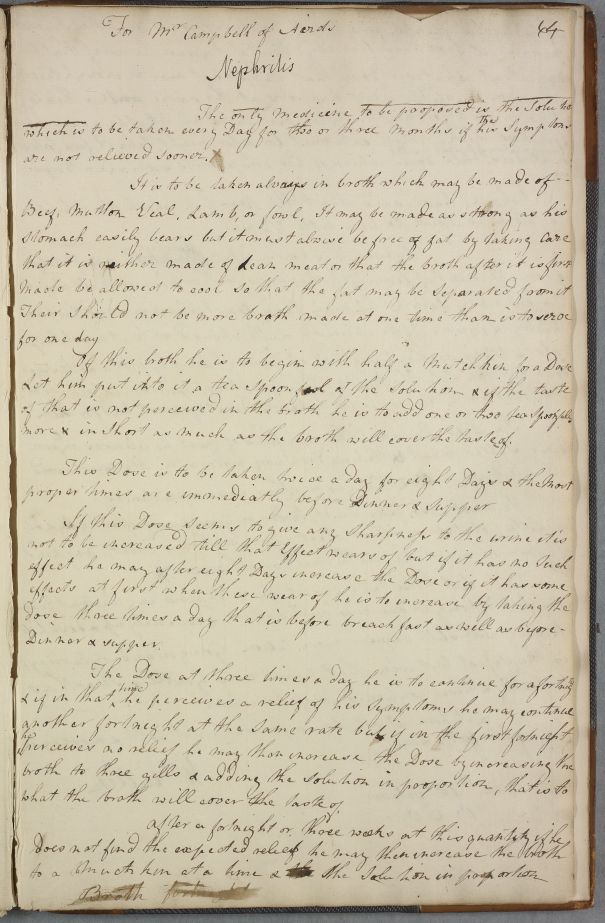 For Mr Campbell of Airds 44
Nephritis
The only medicine to be proposed is the Solution
which is to be taken every Day for two or three months if the his Symptoms
are not relieved sooner.
It is to be taken always in broth which may be made of
Beef, Mutton Veal, Lamb, or fowl, It may be made as strong as his
Stomach easily bears but it must alwise be free of fat by taking Care
that it is neither made of Lean meat or that the broth after it is first
made be allowed to cool so that the fat may be Separated from it
Their Should not be more broth made at one time than is to serve
for one day
Of this broth he is to begin with half a Mutchkin for a Dose
Let him put into it a tea Spoonful of the Solution & if the taste
of that is not perceived in the broth he is to add one or two teaspoonfuls
more & in Short as much as the broth will cover the taste of.
This Dose is to be taken twice a day for eight Days & the most
proper times are immediatly before Dinner & Supper
If this Dose seems to give any Sharpness to the urine it is
not to be increased till that Effect wears of but if it has no Such
effect he may after eight Days increase the Dose or if it has some
effects at first when these wear of he is to increase by taking the
dose three times a day that is before breachfast as well as before
Dinner & supper.
The Dose at three times a day he is to continue for a fortnight
& if in that time he perceives a relief of his Symptoms he may continue
another fortnight at the Same rate but if in the first fortneght
he perceives no relief he may than increase the Dose by increasing the
broth to three gills & adding the Solution in proportion, that is to
what the broth will cover the taste of
after a fortnight or three weeks at this quantity if he
does not find the expected relief he may then increase the broth
to a Mutchkin at a time & the Solution in proportion
Broth fortnight